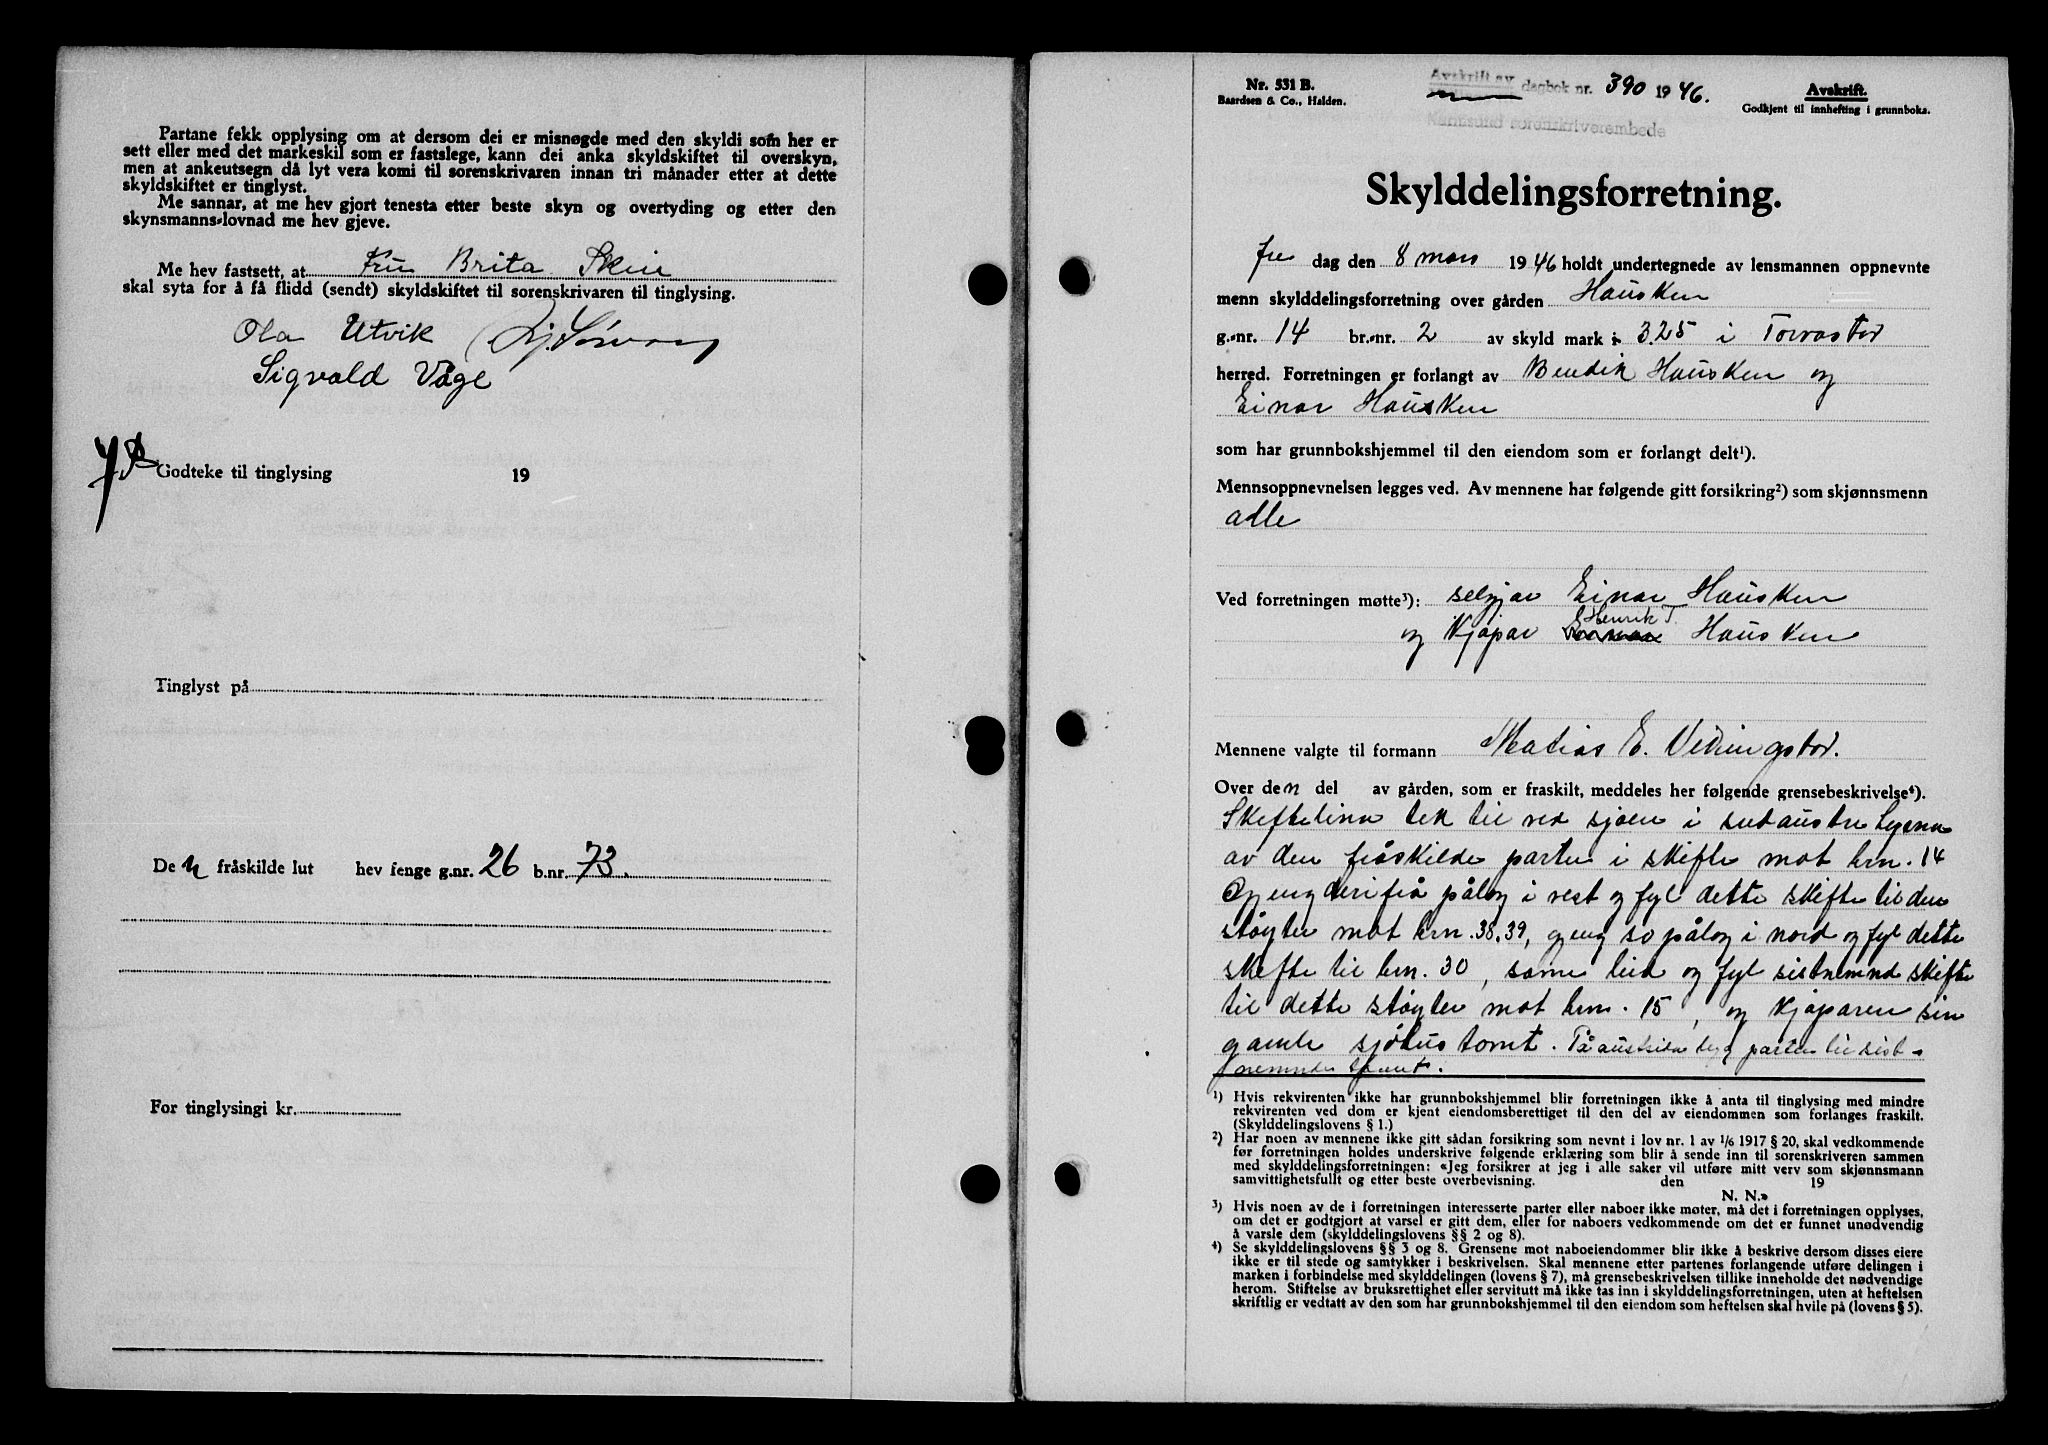 Partane fekk opplysing om at dersom dei er misnøgde med den skyldi som her er
sett eller med det markeskil som er fastslege, kann dei anka skyldskiftet til overskyn,
men at ankeutsegn då lyt vera komi til sorenskrivaren innan tri månader etter at dette
skyldskiftet er tinglyst.
Me sannar, at me hev gjort tenesta etter beste skyn og overtyding og etter den
skynsmanns-lovnad me hev gjeve.
Me hev fastsett, at Fru Brita Skeie
skal syta for å få flidd (sendt) skyldskiftet til sorenskrivaren til tinglysing.
Ola Utvik
Sigvald Våge
Godteke til tinglysing 19
Tinglyst på
De n fråskilde lut hev fenge g.nr. 26 b.nr. 73.
For tinglysingi kr.
Nr. 531 B.
Baardsen & Co., Halden.
Avskrift av dagbok nr. 390 1946.
Karmsund sorenskriverembede
Avskrift.
Godkjent til innhefting i grunnboka.
Skylddelingsforretning.
fre dag den 8 mars 1946 holdt undertegnede av lensmannen oppnevnte
menn skylddelingsforretning over gården Hausken
g.-nr. 14 br.-nr. 2 av skyld mark 3.25 i Torvastad
herred. Forretningen er forlangt av Bendik Hausken og
Einar Hausken
som har grunnbokshjemmel til den eiendom som er forlangt delt¹).
Mennsoppnevnelsen legges ved. Av mennene har følgende gitt forsikring²) som skjønnsmenn
alle
Ved forretningen møtte³): seljar Einar Hausken
og kjøpar Henrik T. Hausken
Mennene valgte til formann Matias E. Vikingstad.
Over den del av gården, som er fraskilt, meddeles her følgende grensebeskrivelse⁴).
Skiftelina tek til ved sjøen i sudaustre hyrna
av den fråskilde parten i skifte mot brn. 14
og gjeng derifrå pålag i vest og fyl dette skifte til den
støyter mot brn. 38, 39, gjeng so pålag i nord og fyl dette
skifte til brn. 30, same leid og fyl sistnemnd skifte
til dette støyter mot brn. 15, og kjøparen sin
gamle sjøhustomt. På austsida parten til sist-
nemnde
¹) Hvis rekvirenten ikke har grunnbokshjemmel blir forretningen ikke å anta til tinglysing med mindre
rekvirenten ved dom er kjent eiendomsberettiget til den del av eiendommen som forlanges fraskilt.
(Skylddelingslovens § 1.)
²) Har noen av mennene ikke gitt sådan forsikring som nevnt i lov nr. 1 av 1/6 1917 § 20, skal vedkommende
før forretningen holdes underskrive følgende erklæring som blir å sende inn til sorenskriveren sammen
med skylddelingsforretningen: «Jeg forsikrer at jeg i alle saker vil utføre mitt verv som skjønnsmann
samvittighetsfullt og etter beste overbevisning. den 19
N. N.»
³) Hvis noen av de i forretningen interesserte parter eller naboer ikke møter, må det i forretningen opplyses,
om det er godtgjort at varsel er gitt dem, eller for naboers vedkommende om det er funnet unødvendig
å varsle dem (skylddelingslovens §§ 2 og 8).
⁴) Se skylddelingslovens §§ 3 og 8. Grensene mot naboeiendommer blir ikke å beskrive dersom disses eiere
ikke er til stede og samtykker i beskrivelsen. Skal mennene etter partenes forlangende utføre delingen i
marken i forbindelse med skylddelingen (lovens § 7), må grensebeskrivelsen tillike inneholde det nødvendige
herom. Stiftelse av bruksrettighet eller servitutt må ikke tas inn i skylddelingsforretningen, uten at heftelsen
skriftlig er vedtatt av den som har grunnbokshjemmel til den eiendom som heftelsen skal hvile på (lovens § 5).